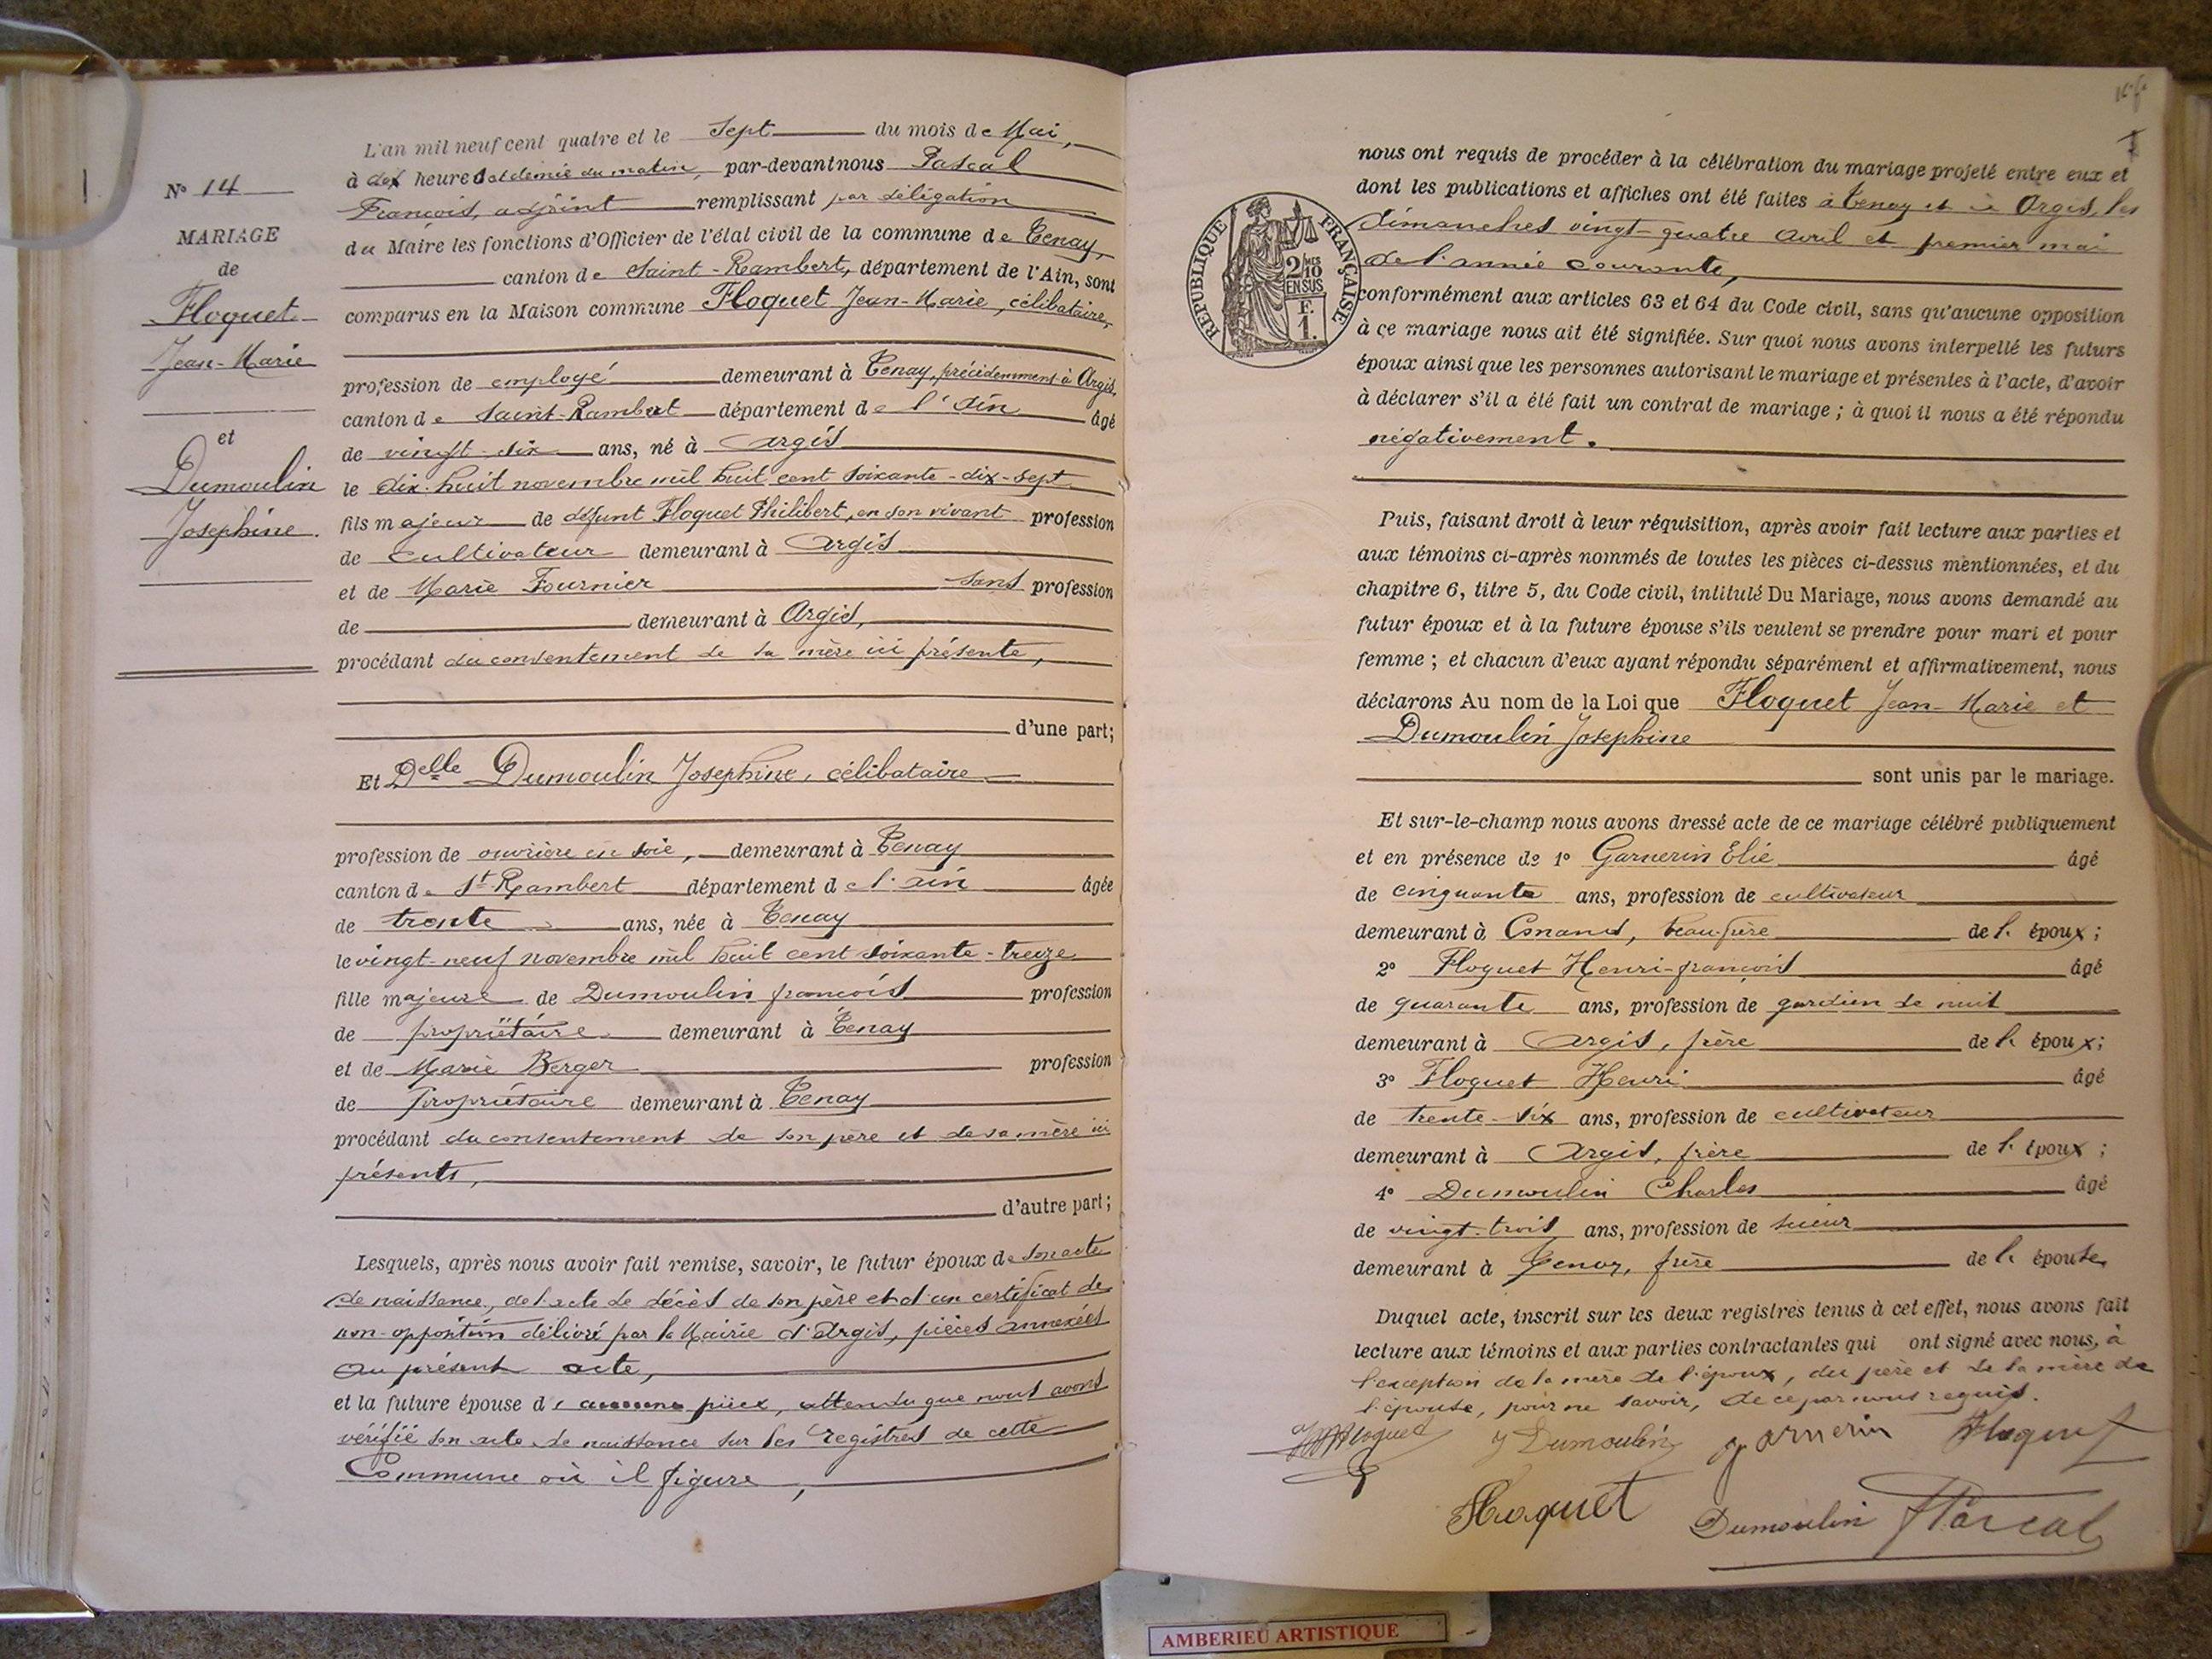 N° 14
MARIAGE
de
Floquet
Jean-Marie
et
Dumoulin
Josephine.
L'an mil neuf cent quatre et le Sept du mois de Mai,
à dix heures et demie du matin, par-devant nous Pascal
François, adjoint remplissant par délégation
du Maire les fonctions d'Officier de l'état civil de la commune de Tenay,
canton de Saint-Rambert, département de l'Ain, sont
comparus en la Maison commune Floquet Jean-Marie, célibataire,
profession de employé demeurant à Tenay, précédemment à Argis,
canton de Saint-Rambert département de l'Ain âgé
de vingt-six ans, né à Argis
le dix-huit novembre mil huit cent soixante-dix-sept
fils majeur de défunt Floquet Philibert, en son vivant profession
de cultivateur demeurant à Argis
et de Marie Fournier sans profession
de demeurant à Argis,
procédant du consentement de sa mère ici présente,
d'une part;
Et Delle Dumoulin Josephine, célibataire
profession de ouvrière en soie, demeurant à Tenay
canton de St-Rambert département de l'Ain âgée
de trente ans, née à Tenay
le vingt-neuf novembre mil huit cent soixante-treize
fille majeure de Dumoulin françois profession
de propriétaire demeurant à Tenay
et de Marie Berger profession
de Propriétaire demeurant à Tenay
procédant du consentement de son père et de sa mère ici
présents,
d'autre part;
Lesquels, après nous avoir fait remise, savoir, le futur époux de son acte
de naissance, de l'acte de décès de son père et d'un certificat de
non-opposition délivré par la Mairie d'Argis, pièces annexées
au présent acte,
et la future épouse d'aucune pièce, attendu que nous avons
vérifié son acte de naissance sur les registres de cette
Commune où il figure,
RÉPUBLIQUE FRANÇAISE
2/10 MES
EN SUS
F.
1.
nous ont requis de procéder à la célébration du mariage projeté entre eux et
dont les publications et affiches ont été faites à Tenay et à Argis, les
dimanches vingt-quatre avril et premier mai
de l'année courante,
conformément aux articles 63 et 64 du Code civil, sans qu'aucune opposition
à ce mariage nous ait été signifiée. Sur quoi nous avons interpellé les futurs
époux ainsi que les personnes autorisant le mariage et présentes à l'acte, d'avoir
à déclarer s'il a été fait un contrat de mariage; à quoi il nous a été répondu
négativement.
Puis, faisant droit à leur réquisition, après avoir fait lecture aux parties et
aux témoins ci-après nommés de toutes les pièces ci-dessus mentionnées, et du
chapitre 6, titre 5, du Code civil, intitulé Du Mariage, nous avons demandé au
futur époux et à la future épouse s'ils veulent se prendre pour mari et pour
femme; et chacun d'eux ayant répondu séparément et affirmativement, nous
déclarons Au nom de la Loi que Floquet Jean-Marie et
Dumoulin Josephine
sont unis par le mariage.
Et sur-le-champ nous avons dressé acte de ce mariage célébré publiquement
et en présence de 1° Garnerin Elie âgé
de cinquante ans, profession de cultivateur
demeurant à Conand, beau-frère de l'époux;
2° Floquet Henri-françois âgé
de quarante ans, profession de gardien de nuit
demeurant à Argis, frère de l'époux;
3° Floquet Henri âgé
de trente-six ans, profession de cultivateur
demeurant à Argis, frère de l'époux;
4° Dumoulin Charles âgé
de vingt-trois ans, profession de scieur
demeurant à Tenay, frère de l'épouse
Duquel acte, inscrit sur les deux registres tenus à cet effet, nous avons fait
lecture aux témoins et aux parties contractantes qui ont signé avec nous, à
l'exception de la mère de l'époux, du père et de la mère de
l'épouse, pour ne savoir, de ce par nous requis.
Floquet J Dumoulin garnerin Floquet
Floquet Dumoulin F Pascal
AMBERIEU ARTISTIQUE